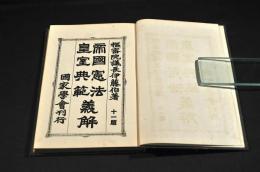 樞密院議長伊藤伯著 十一版
帝國憲法
皇室典範 義解
國家學會刊行